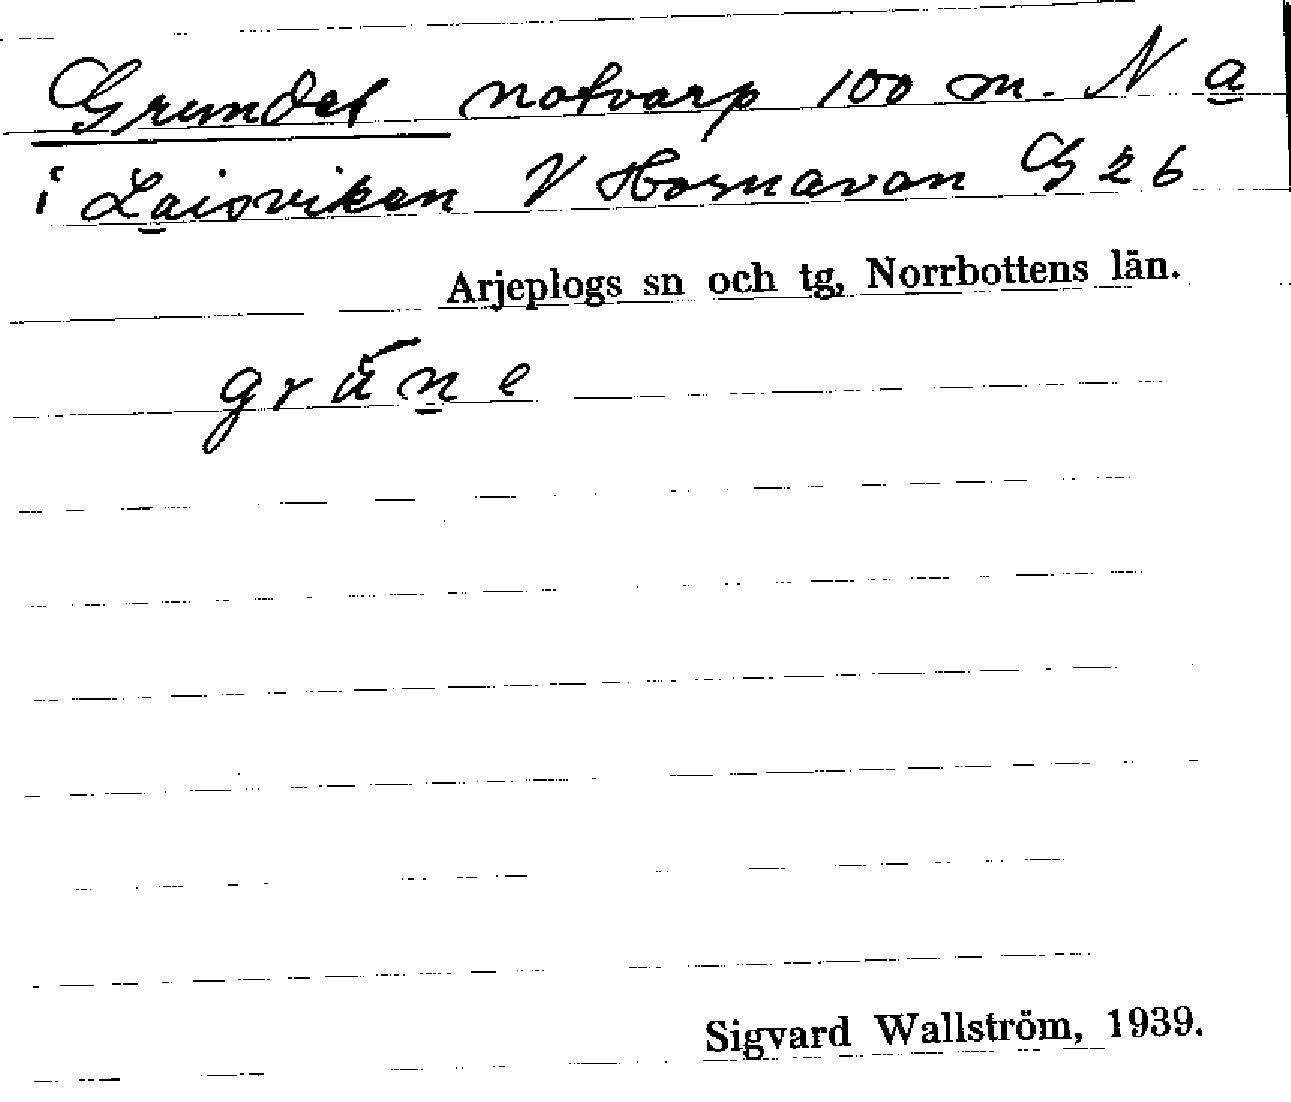 Grundet notvarp 100 m. N a
i Laisviken V Hornavan G 26
Arjeplogs sn och tg, Norrbottens län.
grúne
Sigvard Wallström, 1939.